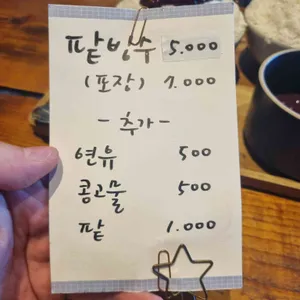 팥빙수 5.000
(포장) 7.000
- 추가 -
연유 500
콩고물 500
팥 1.000